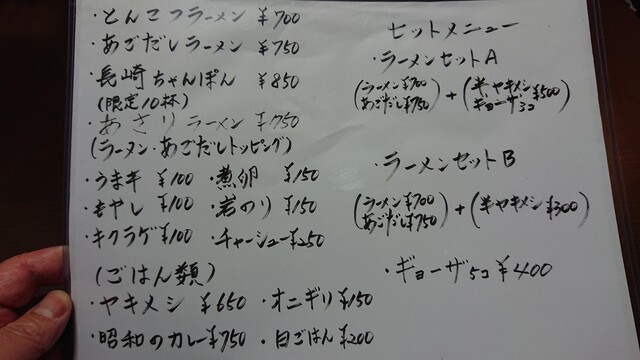 ・とんこつラーメン ¥700
・あごだしラーメン ¥750
・長崎ちゃんぽん ¥850
(限定10杯)
・あさりラーメン ¥750
(ラーメン・あごだしトッピング)
・うま辛 ¥100 ・煮卵 ¥150
・もやし ¥100 ・岩のり ¥150
・キクラゲ ¥100 ・チャーシュー ¥250
(ごはん類)
・ヤキメシ ¥650 ・オニギリ ¥150
・昭和のカレー ¥750 ・白ごはん ¥200
セットメニュー
・ラーメンセットA
(ラーメン ¥700 あごだし ¥750) + (半ヤキメシ ギョーザ3コ ¥500)
・ラーメンセットB
(ラーメン ¥700 あごだし ¥750) + (半ヤキメシ ¥300)
・ギョーザ5コ ¥400